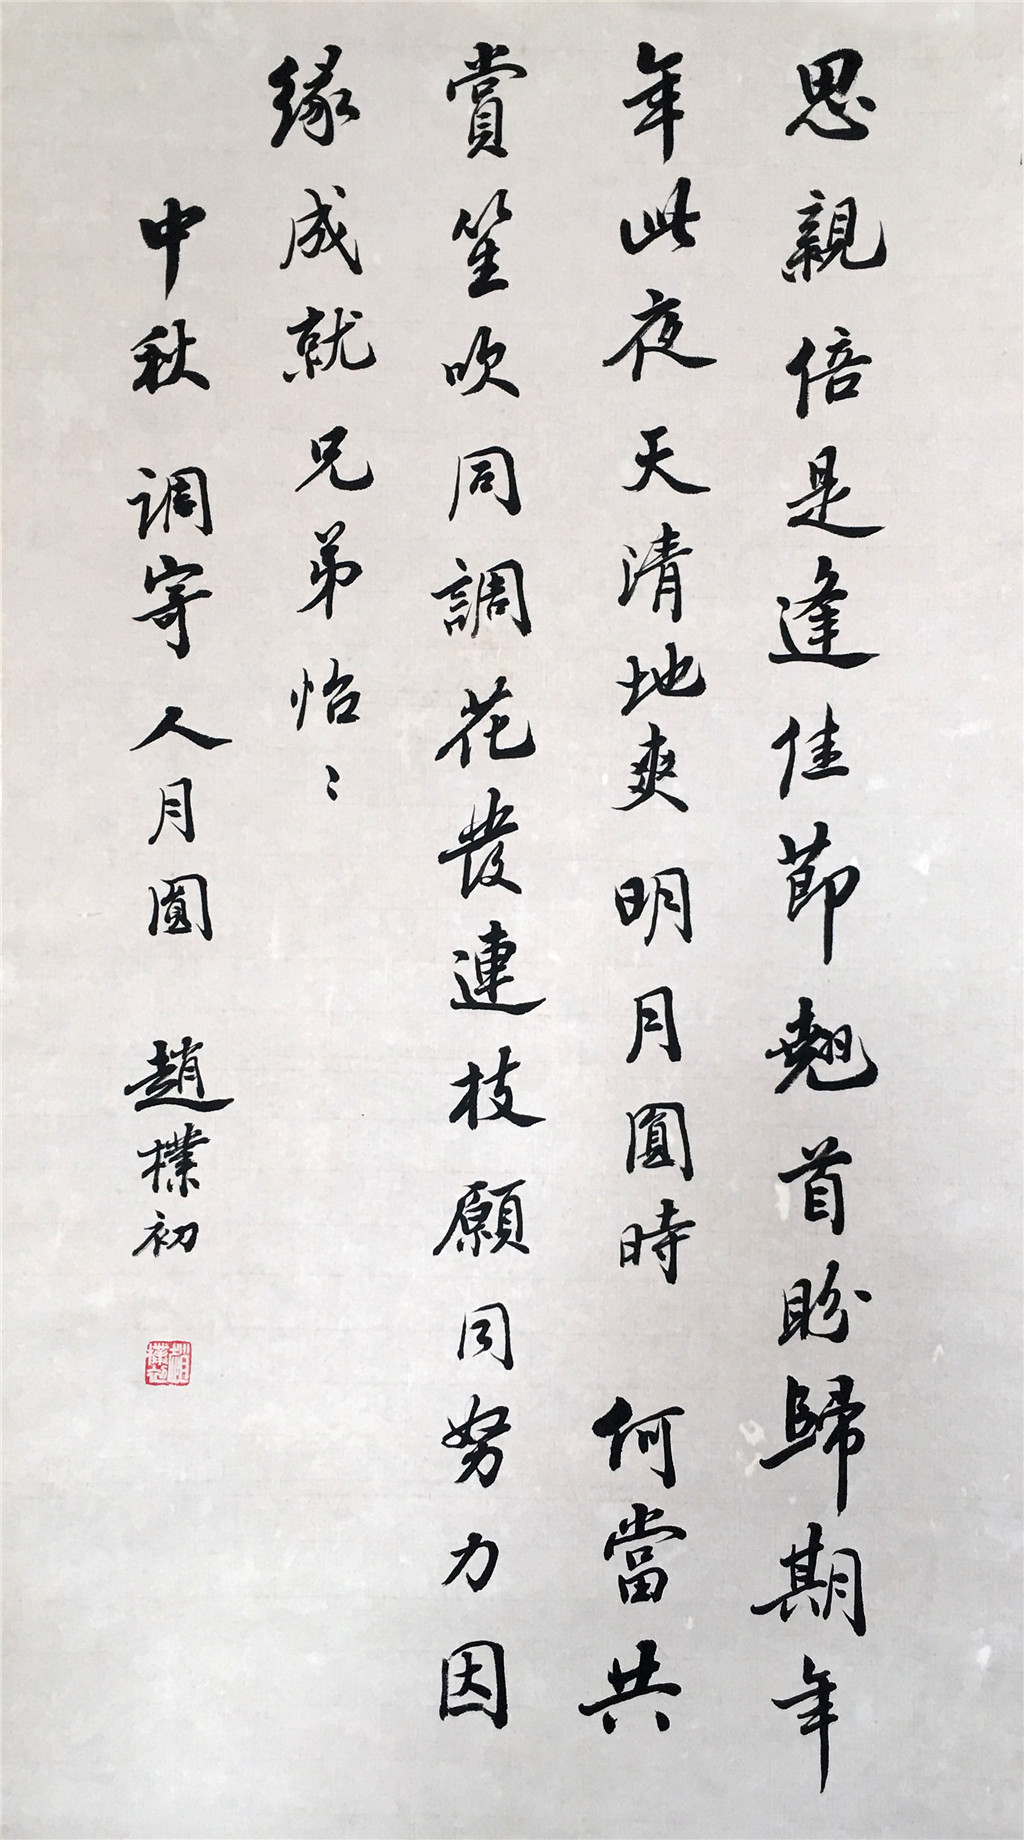 思親倍是逢佳節翹首盼歸期年
年此夜天清地爽明月圓時何當共
賞笙吹同調花發連枝願同努力因
緣成就兄弟怡〻
中秋调寄人月圓趙樸初
趙樸初